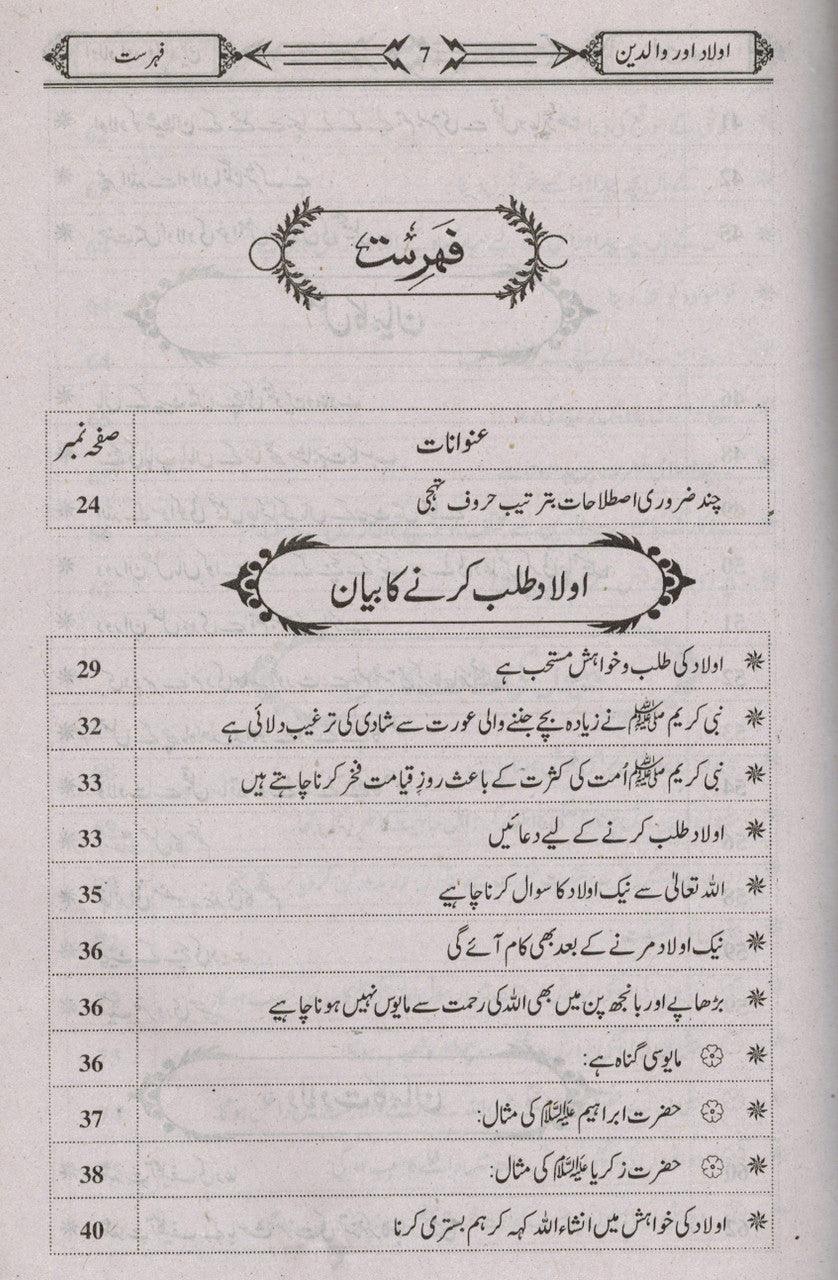 اولاد اور والدین 7 فہرست
فَہرِسْت
عنوانات صفحہ نمبر
چند ضروری اصطلاحات بترتیب حروف تہجی 24
اولاد طلب کرنے کا بیان
✴ اولاد کی طلب و خواہش مستحب ہے 29
✴ نبی کریم ﷺ نے زیادہ بچے جننے والی عورت سے شادی کی ترغیب دلائی ہے 32
✴ نبی کریم ﷺ اُمت کی کثرت کے باعث روزِ قیامت فخر کرنا چاہتے ہیں 33
✴ اولاد طلب کرنے کے لیے دعائیں 33
✴ اللہ تعالیٰ سے نیک اولاد کا سوال کرنا چاہیے 35
✴ نیک اولاد مرنے کے بعد بھی کام آئے گی 36
✴ بڑھاپے اور بانجھ پن میں بھی اللہ کی رحمت سے مایوس نہیں ہونا چاہیے 36
✴ مایوسی گناہ ہے: 36
✴ حضرت ابراہیم علیہ السلام کی مثال: 37
✴ حضرت زکریا علیہ السلام کی مثال: 38
✴ اولاد کی خواہش میں انشاء اللہ کہہ کر ہم بستری کرنا 40